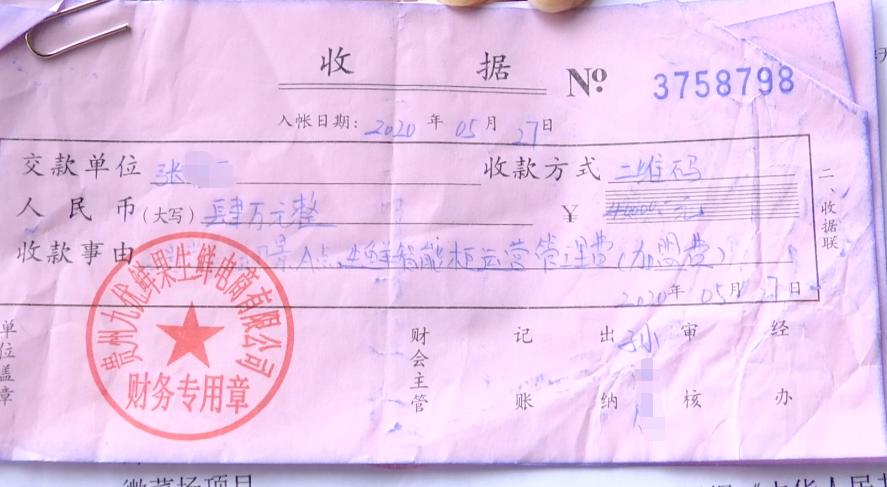 收 据 № 3758798
入帐日期: 2020 年 05 月 27 日
交款单位 张 收款方式 二维码
人民币(大写) 肆万元整 ¥ 40000 元
收款事由 景A点,生鲜智能柜运营管理费(加盟费)
2020 年 05 月 27 日
二、收据联
单位盖章
财会主管
记账
出纳 孙
审核
经办
贵州九优鲜果生鲜电商有限公司
财务专用章
微菜场项目